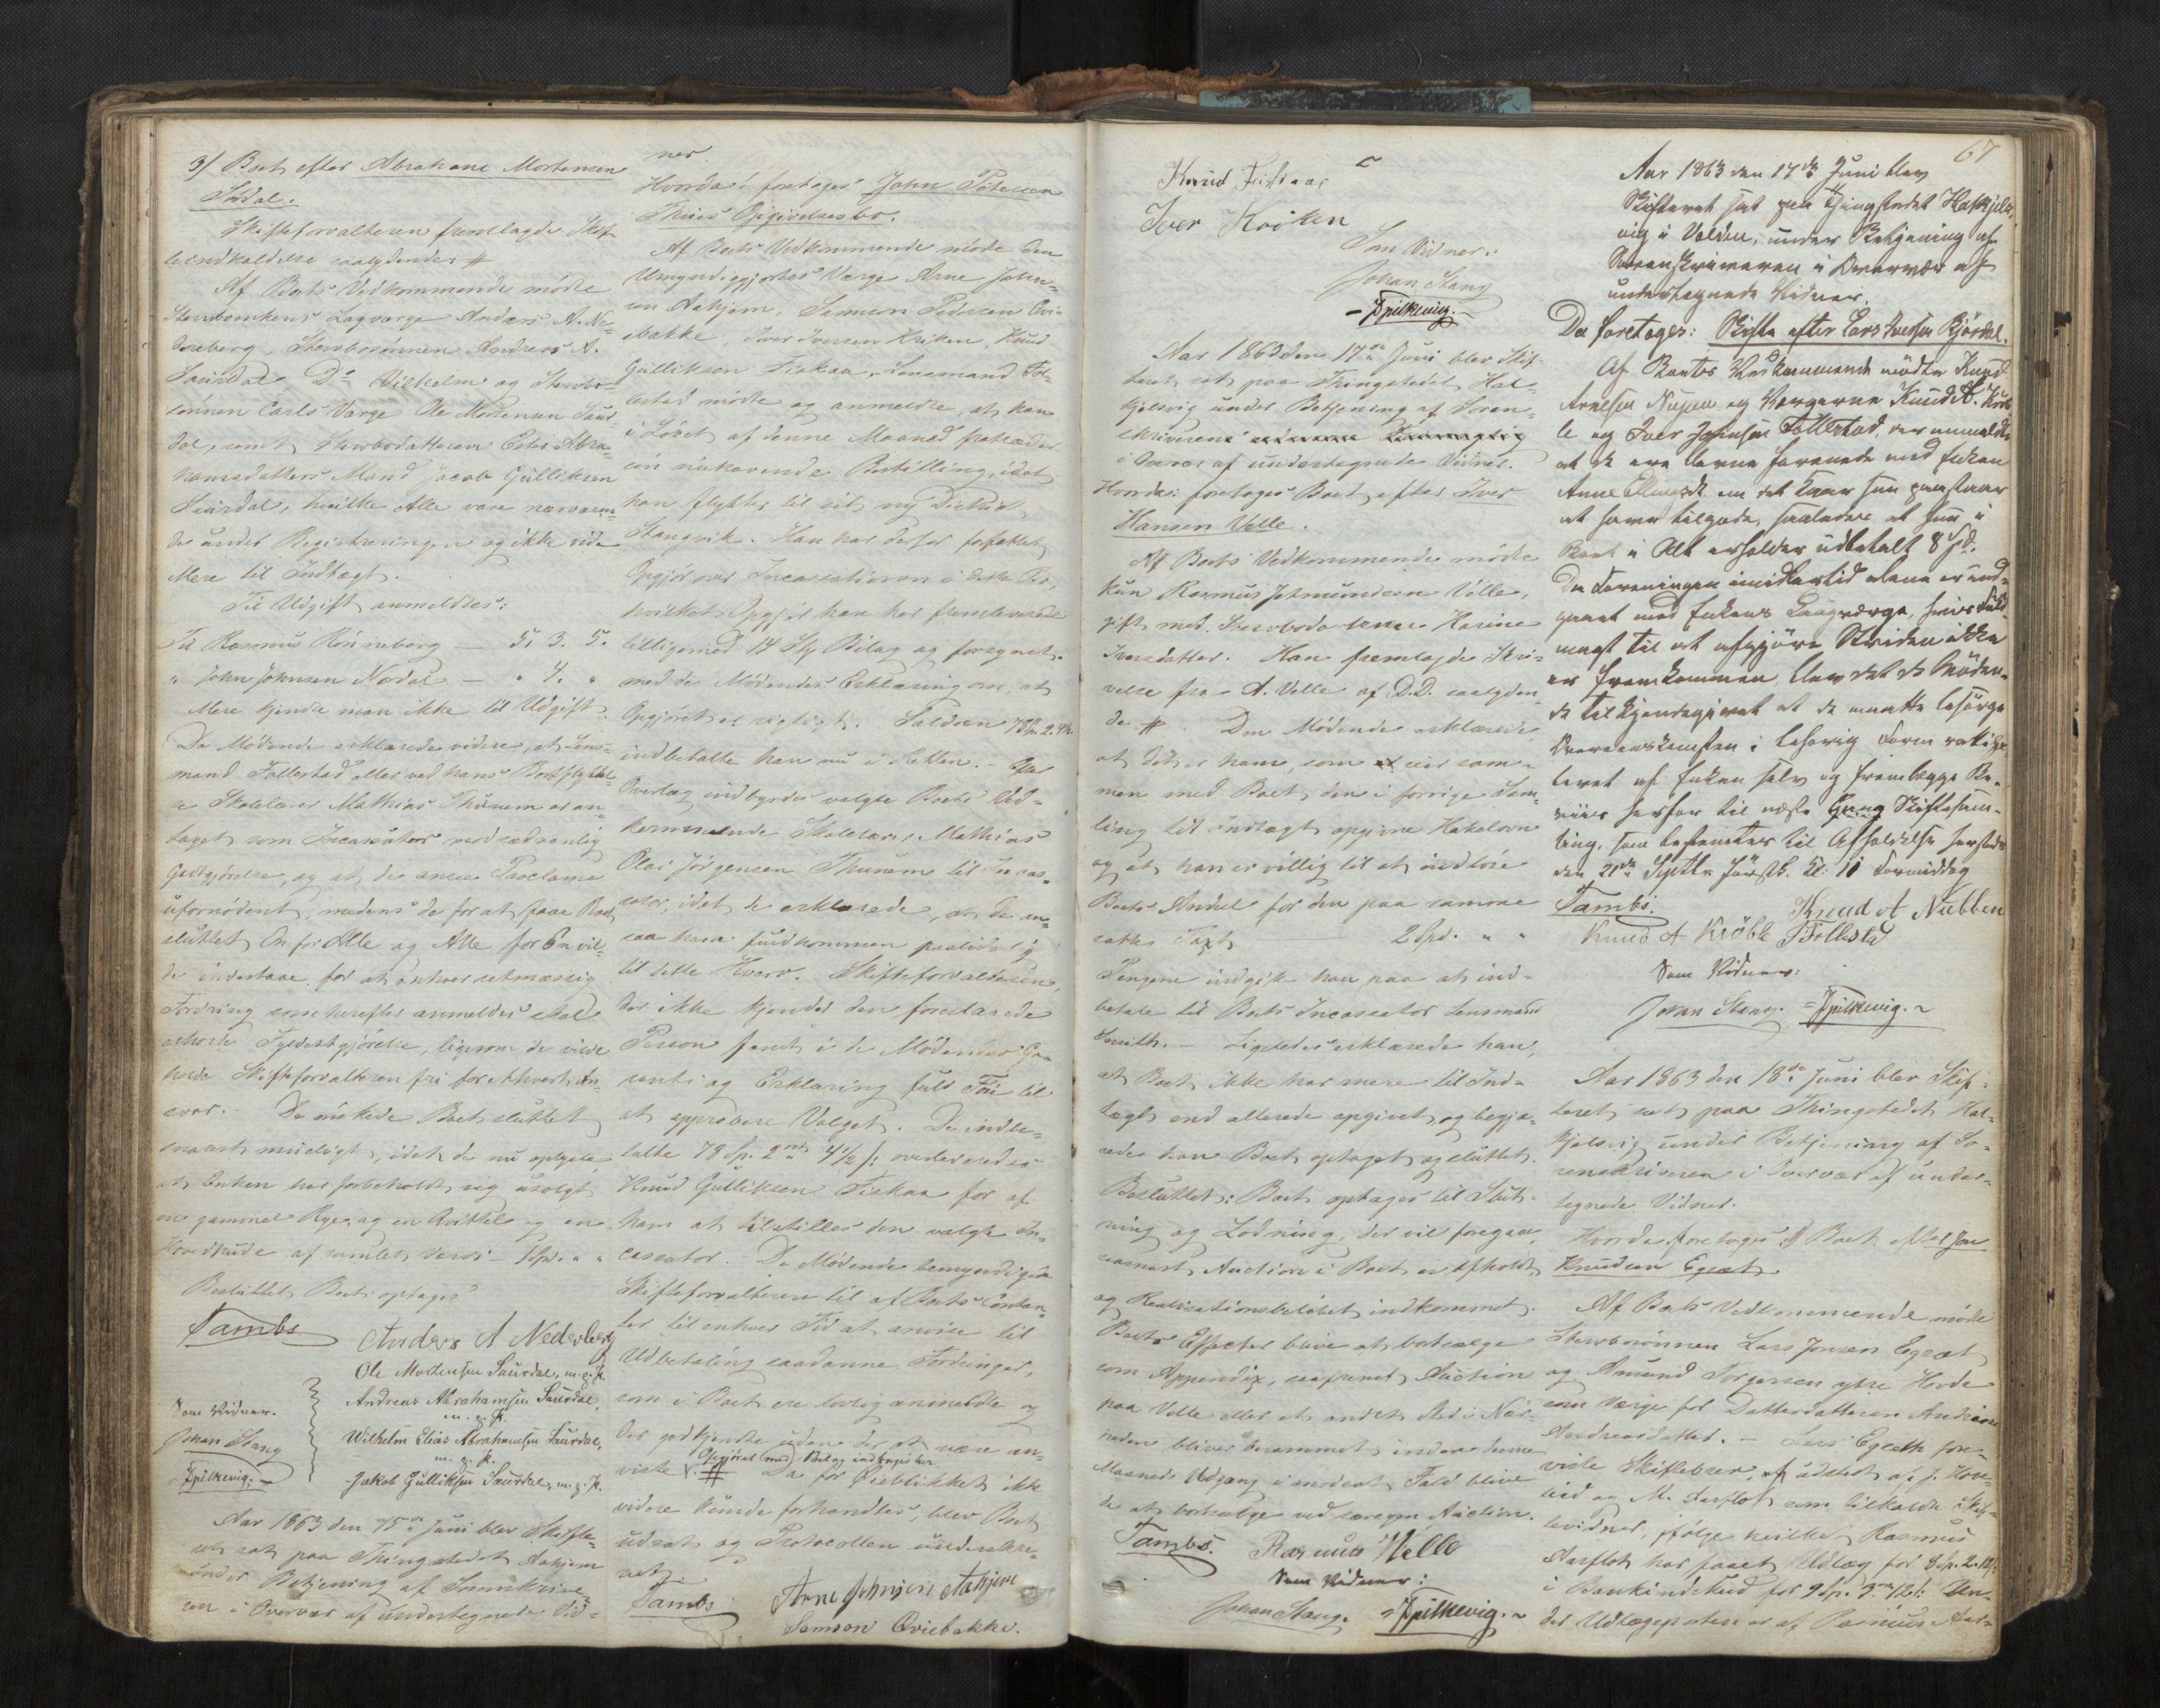 3/ Boet efter Abraham Mortensen
Sördal.
Skifteforvalteren fremlagde Skif-
teindkaldelse saalydende #
Af Boets Vedkommende mödte
Stervboenkens Lagværge Anders A. Ne-
dreberg, Stervbosönnen Andreas A.
Saurdal, Do Vilhelm og Stervbo-
sönnen Carls Værge Ole Mortensen Saur-
dal, samt Stervbodatteren Abra-
hamsdatters Mand Jacob Gulliksen
Saurdal, hvilke Alle vare nærværen-
de under Registreringen og ikke vide
Mere til Indtægt.
Til Udgift anmeldtes:
Til Rasmus Rönneberg — 5. 3. 5.
" John Johnsen Nordal — " 4. "
Mere kjendte man ikke til Udgift.
De Mödende erklærede videre, at Lens-
mand Follestad eller ved hans Bortflyttel-
se Skolelærer Mathias Thunem er an-
taget som Incassator mod sædvanlig
Godtgjörelse, og at de ansee Proclama
ufornödent, medens de for at faae Boet
sluttet En for Alle og Alle for En vil-
de indestaae for at enhver retmæssig
Fordring som herefter anmeldes skal
erholde Fyldestgjörelse, ligesom de vilde
holde Skifteforvalteren fri for ethvert An-
svar. De önskede Boet sluttet
snarest mueligt, idet de nu oplyste
at Enken har forbeholdt sig usolgt
en gammel Rye og en Qvittel og en
Hovedpude af samlet Værdi 1 Spd. " "
Besluttet Boet optages
Tambs Anders A Nedreberg
Ole Mortensen Saurdal, m. p. P.
Andreas Abrahamsen Saurdal,
m. p. P.
Wilhelm Elias Abrahamsen Saurdal,
m. p. P.
Jakob Gulliksen Saurdal, m. p. P.
Som Vidner.
Johan Stang
Spilkevig.
Aar 1863 den 15de Juni blev Skifte-
ret sat paa Thingstedet Aahjem
under Betjening af Sorenskrive-
ren i Overvær af undertegnede Vid-
ner.
Hvorda: foretoges John Petersen
Thues Opgivelsesbo.
Af Boets Vedkommende mödte den
Umyndiggjortes Værge Arne John-
sen Aahjem, Samson Pedersen Qvi-
ebakke, Iver Iversen Kriken, Knud
Gulliksen Fiskaa, Lensmand Fol-
lestad mödte og anmeldte, at han
i Löbet af denne Maaned fratræder
sin nuhavende Bestilling, idet
han flytter til sit ny Distrikt
Stangvik. Han har derfor forfattet
Opgjör over Incassationen i dette Bo,
hvilket Opgjör han har fremleveret
tilligemed 14 Stk Bilag og forsynet
med de Mödendes Erklæring om, at
Opgjöret er rigtigt. Saldoen 78 Sp. 2. 4½
indbetalte han nu i Retten. – Efter
Overlæg indbyrdes valgte Boets Ved-
kommende Skolelærer Mathias
Olai Jörgensen Thunem til Incas-
sator, idet de erklærede, at de an-
saa ham fuldkommen paalidelig
til dette Hverv. Skifteforvalteren,
der ikke kjender den foreslaaede
Person fandt i de Mödendes Ga-
ranti og Erklæring fuld Föie til
at approbere Valget. De indbe-
talte 78 Sp. 2 ort 4½ s. overleveredes
Knud Gulliksen Fiskaa for af
ham at tilstilles den valgte In-
cassator. De Mödende bemyndigede
Skifteforvalteren til af Boets Contan-
ter til enhver Tid at anvise til
Udbetaling saadanne Fordringer,
som i Boet ere lovlig anmeldte og
der godkjendte uden der at være an-
viste. # Opgjöret med Bilag indtages her.
Da for Öieblikket ikke
videre kunde forhandles, blev Boet
udsat og Protocollen underskre-
vet.
Tambs Arne Johnsen Aahjem
Samson Qviebakke.
Knud Fiskaa
Iver Kriken
Som Vidner:
Johan Stang
Spilkevig.
Aar 1863 den 17de Juni blev Skif-
teret sat paa Thingstedet Hal-
kjelsvig under Betjening af Soren-
skriveren
i Overvær af undertegnede Vidner.
Hvorda: foretoges Boet efter Iver
Hansen Velle.
Af Boets Vedkommende mödte
kun Rasmus Johnundsen Velle,
gift med Stervbodatteren Karine
Iversdatter. Han fremlagde Skri-
velse fra A. Velle af D.D. saalyden-
de # Den Mödende erklærede
at det er ham, som eier sam-
men med Boet, den i forrige Sam-
ling til Indtægt opgivne
og at han er villig til at indlöse
Boets Andel for den paa samme
satte Taxt — 2 Spd. " "
Pengene indgik han paa at ind-
betale til Boets Incassator Lensmand
Smith. – Ligeledes erklærede han,
at Boet ikke har mere til Ind-
tægt end allerede opgivet og begjæ-
rede han Boet optaget og sluttet.
Besluttet: Boet optages til Slut-
ning og Lodning, der vil foregaae
saasnart Auction i Boet er afholdt
og Realisationsbelöbet indkommet.
Boets Effecter blive at bortsælge
som Appendix, saafremt Auction
paa Velle eller et andet Sted i Nær-
heden bliver berammet inden denne
Maaneds Udgang i modsat Fald blive
de at bortsælge ved særegen Auction.
Tambs. Rasmus Velle
Som Vidner:
Johan Stang. Spilkevig.
67
Aar 1863 den 17de Juni blev
Skifteret sat paa Thingstedet Halkjels-
vig i Volden, under Betjening af
Sorenskriveren i Overvær af
undertegnede Vidner.
Da foretoges: Skifte efter Lars Iversen Björdal.
Af Boets Vedkommende mödte Knud
Arnesen og Værgerne Knud A. Kröb-
le og Iver Johnsen Follestad, der anmeldte
at de ere blevne forenede med Enken
Anne Ellingsdt. om det Krav hun paastaar
at have tilgode, saaledes at hun i
Boet i Alt erholder udbetalt 8 Spd.
Da Foreningen imidlertid alene er ind-
gaaet med Enkens Laugværge, hvis Fuld-
magt til at afgjöre Striden ikke
er fremkommen, blev det de Möden-
de tilkjendegivet at de maatte besörge
Overenskomsten i behörig Form ratihe-
beret af Enken selv og fremlægge Be-
viis herfor til næste Gang Skiftesam-
ling, som bestemtes til Afholdelse hersteds
den 21de Septbr. förstk. Kl. 10 Formiddag
Tambs. Knud A Nubben
Knud A Kröble IFollestad
Som Vidner:
Johan Stang. Spilkevig.
Aar 1863 den 18de Juni blev Skif-
teret sat paa Thingstedet Hal-
kjelsvig under Betjening af So-
renskriveren i Overvær af under-
tegnede Vidner.
Hvorda foretoges # Boet efter Jon
Knudsen Egset.
Af Boets Vedkommende mödte
Stervbosönnen Lars Jonsen Egset
og Amund Torgersen ytre Hovde
som Værge for Datterdatteren Andrianne
Andreasdatter. – Lars Egseth fore-
viste Skiftebrev, udstedt af J. Hov-
den og M. Aarflot som tilkaldte Skif-
tevidner, ifölge hvilket Rasmus
Aarflot har faaet Udlæg for 8 Sp. 2. 12
i Bankindskud for 9 Sp. 3 ort 12 s: Un-
der Udlægsposten er af Rasmus Aar-